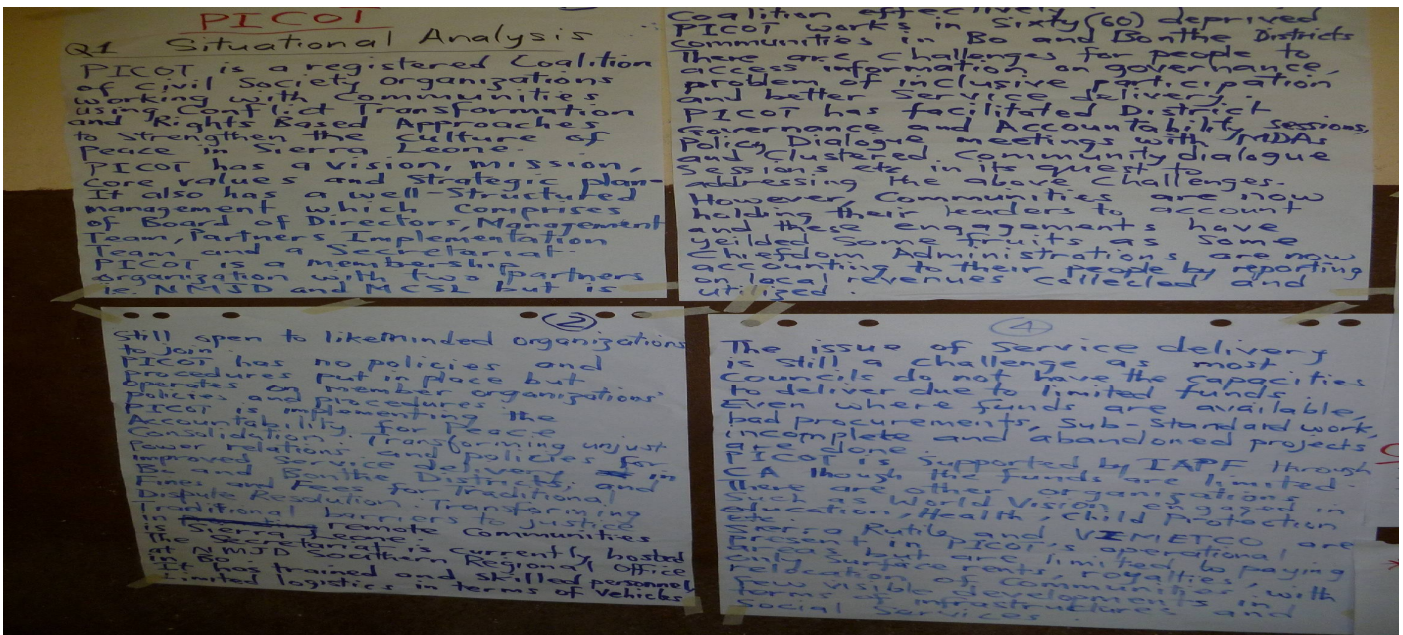 PICOT
Q1 Situational Analysis
PICOT is a registered Coalition
of Civil Society Organizations
working with Communities
using Conflict Transformation
and Rights Based Approaches
to strengthen the Culture of
Peace in Sierra Leone
PICOT has a vision, mission,
core values and Strategic plan-
It also has a well-structured
management which Comprises
of Board of Directors, Management
Team, Partners Implementation
Team and a Secretariat-
PICOT is a membership
organization with two partners
ie. NMJD and MCSL but is
(2)
Still open to likeminded organizations
to join
PICOT has no policies and
procedures put in place but
operates on member organizations'
policies and procedures
PICOT is implementing the
Accountability for Peace
Consolidation. Transforming unjust
power relations and policies for
improved Service delivery in
Bo and Bonthe Districts, and
Fines and Fees for Traditional
Dispute Resolution. Transforming
Traditional barriers to justice
in remote Communities
Sierra Leone
The Secretariat is currently hosted
at NMJD Southern Regional Office
It has trained and skilled personnel
Limited logistics in terms of vehicles
Coalition effectively
PICOT works in Sixty (60) deprived
Communities in Bo and Bonthe Districts
There are challenges for people to
access information on governance,
problem of inclusive participation
and better Service delivery.
PICOT has facilitated District
Governance and Accountability Sessions,
Policy Dialogue meetings with MDAs
and Clustered Community dialogue
Sessions etc in its quest to
addressing the above Challenges.
However, Communities are now
holding their leaders to account
and these engagements have
yeilded Some fruits as Some
Chiefdom Administrations are now
accounting to their people by reporting
on local revenues Collected and
utilized.
(4)
The issue of Service delivery
is still a challenge as most
Councils do not have the capacities
to deliver due to limited funds.
Even where funds are available,
bad procurements, Sub-Standard work,
incomplete and abandoned projects
are done
PICOT is Supported by IAPF through
CA though the funds are limited.
There are other organizations
Such as World Vision engaged in
education, Health, Child Protection
etc.
Sierra Rutile and VIMETCO are
present in PICOT's operational
areas but are limited to paying
only Surface rents, royalties,
relocation of Communities with
few visible developments in
terms of infrastructures and
Social Services.